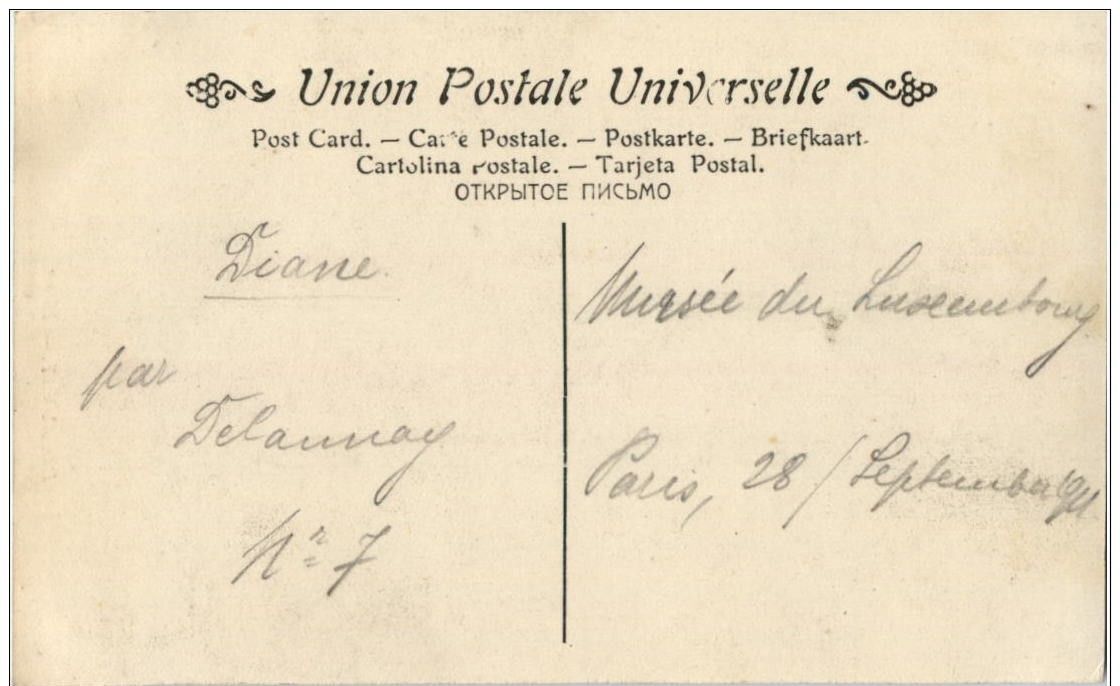 Union Postale Universelle
Post Card. — Carte Postale. — Postkarte. — Briefkaart.
Cartolina Postale. — Tarjeta Postal.
ОТКРЫТОЕ ПИСЬМО
Diane
par
Delaunay
Nr 7
Musée du Luxembourg
Paris, 28 / September